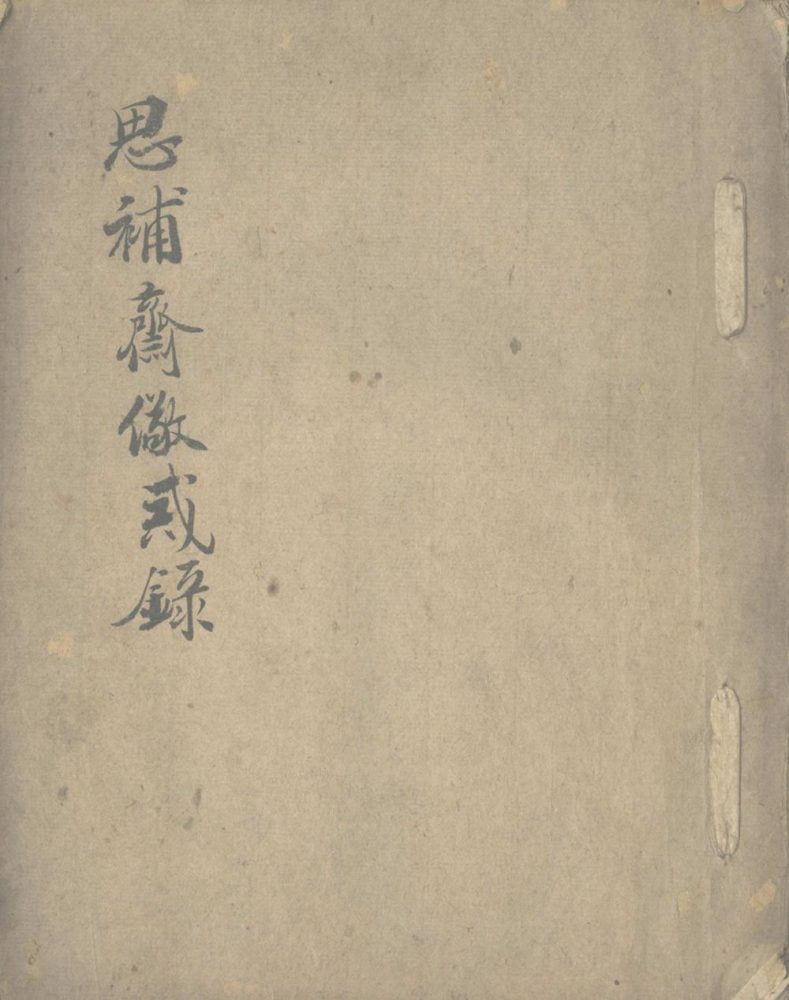 思補齋儆戒錄